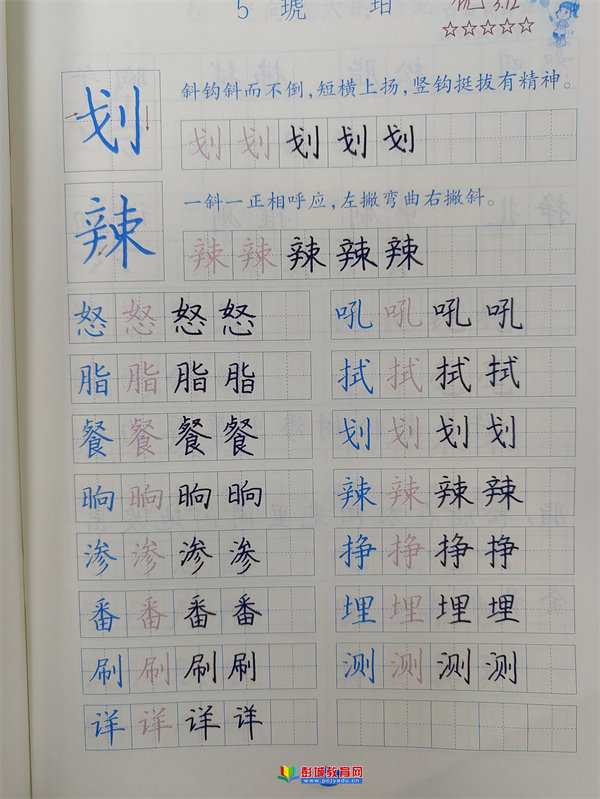 5 琥 珀
优 3.12
☆☆☆☆☆
划 斜钩斜而不倒，短横上扬，竖钩挺拔有精神。
划 划 划 划 划
辣 一斜一正相呼应，左撇弯曲右撇斜。
辣 辣 辣 辣 辣
怒 怒 怒 怒 吼 吼 吼 吼
脂 脂 脂 脂 拭 拭 拭 拭
餐 餐 餐 餐 划 划 划 划
晌 晌 晌 晌 辣 辣 辣 辣
渗 渗 渗 渗 挣 挣 挣 挣
番 番 番 番 埋 埋 埋 埋
刷 刷 刷 刷 测 测 测 测
详 详 详 详
彭城教育网
www.pcjyedu.cn